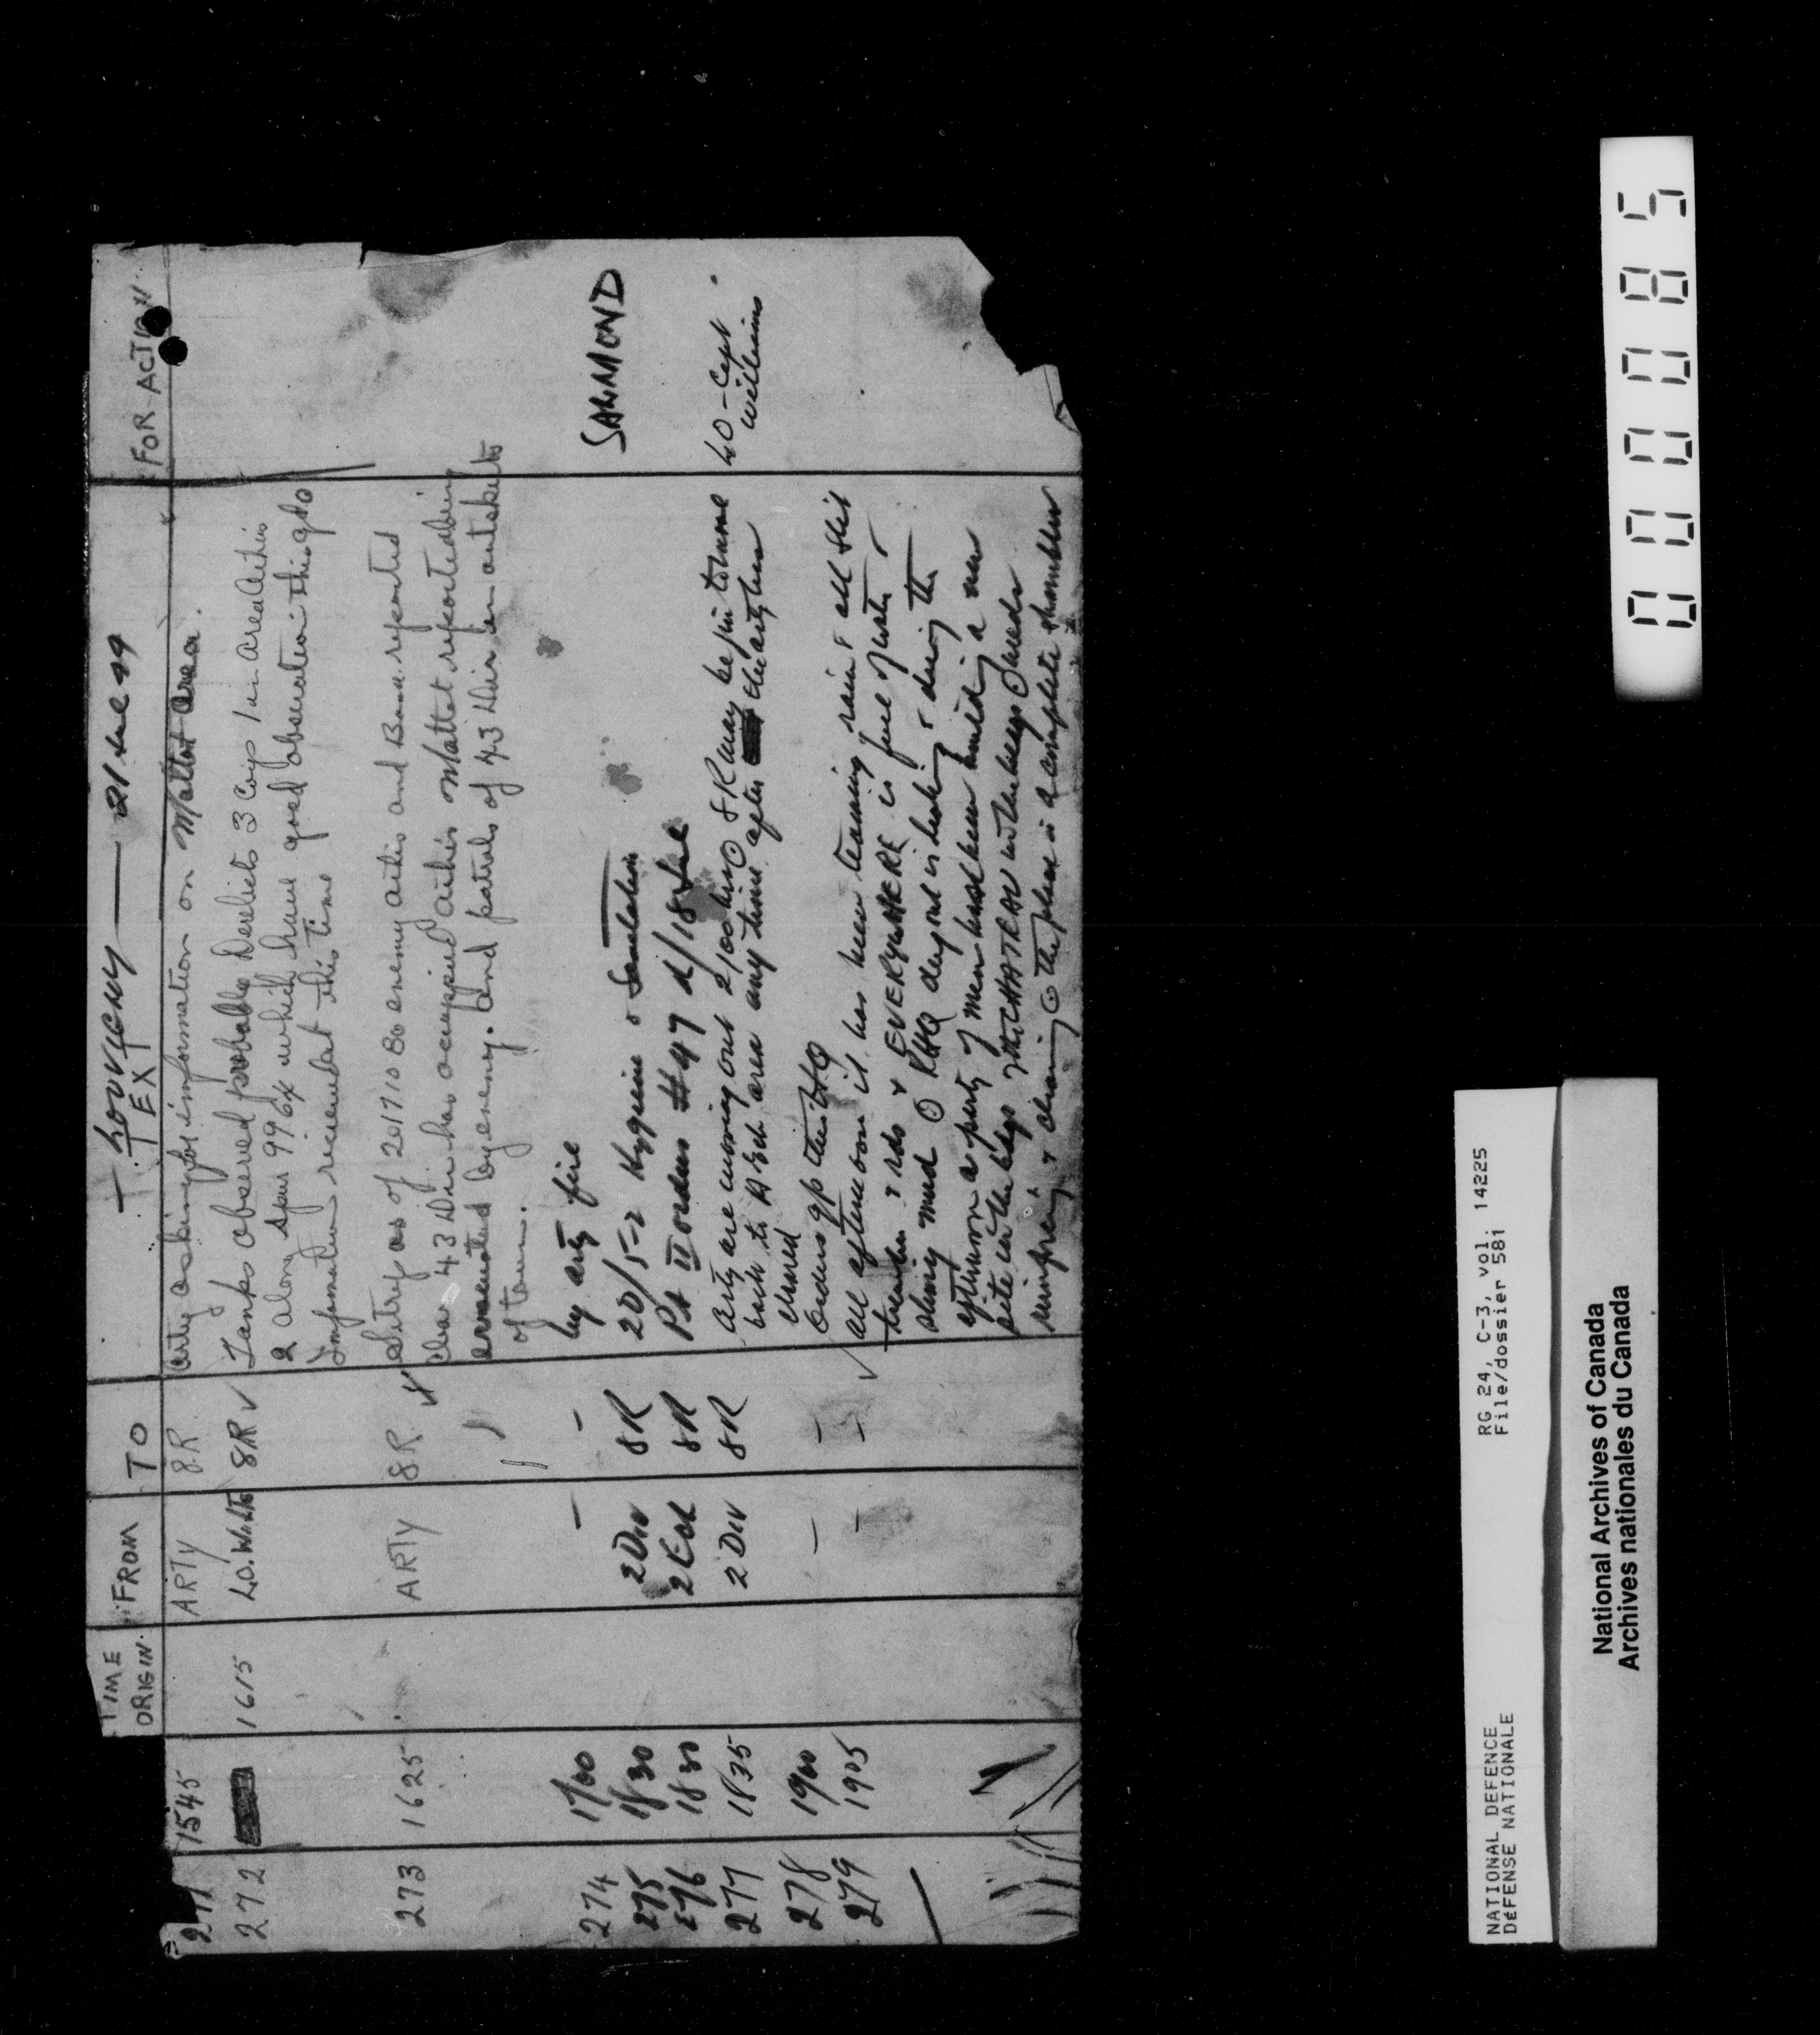 — LOUVIGNY — 21 Jul 44
TIME ORIGIN FROM TO TEXT FOR ACTION
271 1545 ARTY 8R Arty asking for information on Maltot area.
272 1615 L.O. 8R Tanks observed probable derelicts 3 Coys / in area
2 along spur 996x which have good observation
Information received at this time
273 1625 ARTY 8R Sitrep as of 201710 Bo enemy and reported
clear 43 Div has occupied Maltot reported being
evacuated by enemy. and patrols of 43 Div in outskirts
of town.
274 1700 — — by arty fire
275 1830 2 Div 8R 20/5-2 Hygiene & Sanitation SALMOND
276 1830 2 Ech 8R Pt II orders #47 d/18 Jul
277 1835 2 Div 8R Arty are moving out 2100 hrs 8R may begin to move LO - Capt Williams
back to area any time after the arty has
cleared
278 1900 — — Orders gp thru HQ
279 1905 — — All afternoon it has been teaming rain & all slit
trenches & rds & EVERYWHERE is full of water &
slimy mud RHQ dugout is leaking & during the
afternoon a party of men has been building a new
site in the bldgs of the CHATEAU
& cleaning the place is a complete shambles
00085
RG 24, C-3, vol. 14225
File/dossier 581
NATIONAL DEFENCE
DÉFENSE NATIONALE
National Archives of Canada
Archives nationales du Canada